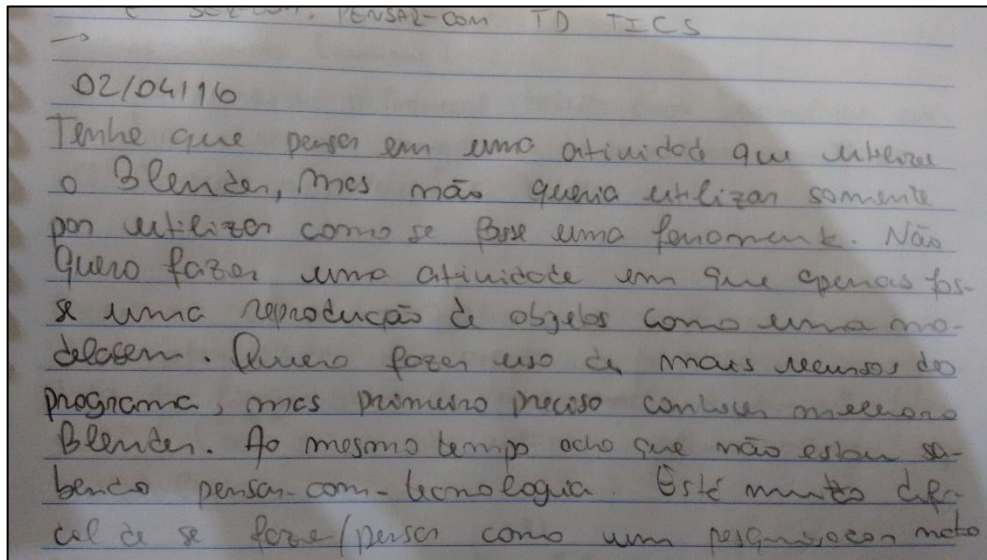 E SER-COM, PENSAR-COM TD TICS
→
02/04/16
Tenho que pensar em uma atividade que utilize
o Blender, mas não queria utilizar somente
por utilizar como se fosse uma ferramenta. Não
Quero fazer uma atividade em que apenas fos-
se uma reprodução de objetos como uma mo-
delagem. Quero fazer uso de mais recursos do
programa, mas primeiro preciso conhecer melhor o
Blender. Ao mesmo tempo acho que não estou sa-
bendo pensar-com-tecnologia. Está muito difí-
cil de se fazer/pensar como um pesquisador